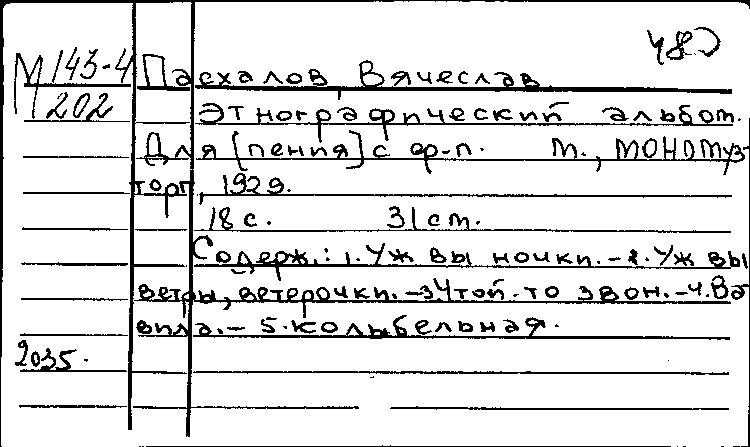 480
М 143-4
202
Пасхалов, Вячеслав.
Этнографический альбом.
Для [пения] с ф-п. М., МОНОМуз-
торг, 1929.
18 с. 31 см.
Содерж.: 1. Уж вы ночки. - 2. Уж вы
ветры, ветерочки. - 3 Что й-то звон. - 4. Ва
вила. - 5. Колыбельная.
2035.